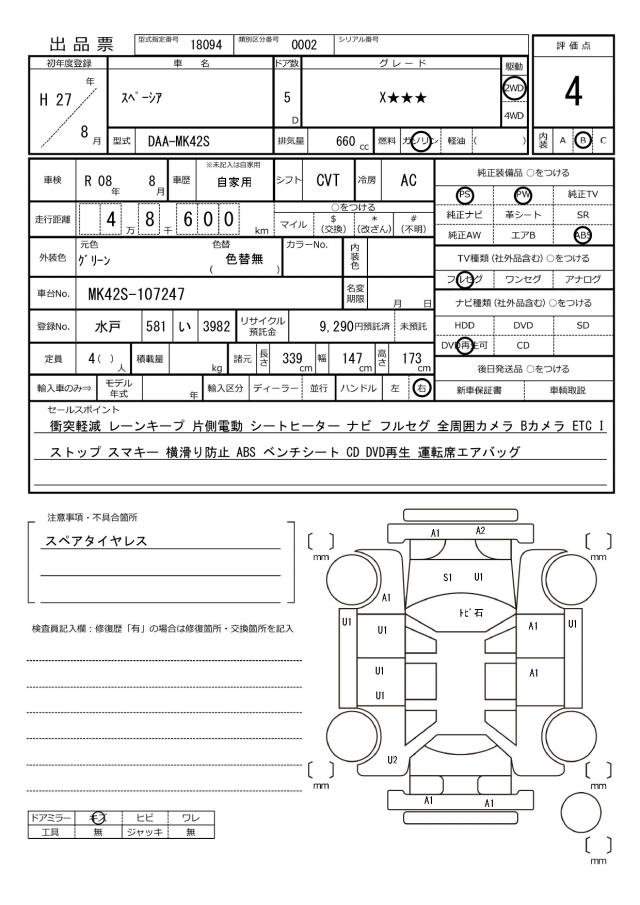 出品票 型式指定番号 18094 類別区分番号 0002 シリアル番号
評価点
初年度登録 車名 ドア数 グレード 駆動
H 27 年 スペーシア 5 D X★★★ 2WD 4
8 月 4WD
型式 DAA-MK42S 排気量 660 cc 燃料 ガソリン 軽油 ( ) 内装 A B C
車検 R 08 年 8 月 車歴 ※未記入は自家用 自家用 シフト CVT 冷房 AC 純正装備品 ○をつける
PS PW 純正TV
走行距離 4 万 8 千 6 0 0 km ○をつける 純正ナビ 革シート SR
マイル $ (交換) * (改ざん) # (不明) 純正AW エアB ABS
外装色 元色 グリーン 色替 ( 色替無 ) カラーNo. 内装色 TV種類(社外品含む)○をつける
フルセグ ワンセグ アナログ
車台No. MK42S-107247 名変期限 月 日 ナビ種類(社外品含む)○をつける
登録No. 水戸 581 い 3982 リサイクル預託金 9,290円預託済 未預託 HDD DVD SD
DVD再生可 CD
定員 4( )人 積載量 kg 諸元 長さ 339 cm 幅 147 cm 高さ 173 cm 後日発送品 ○をつける
輸入車のみ⇒ モデル年式 年 輸入区分 ディーラー 並行 ハンドル 左 右 新車保証書 車輌取説
セールスポイント
衝突軽減 レーンキープ 片側電動 シートヒーター ナビ フルセグ 全周囲カメラ Bカメラ ETC I
ストップ スマキー 横滑り防止 ABS ベンチシート CD DVD再生 運転席エアバッグ
注意事項・不具合箇所
スペアタイヤレス
検査員記入欄：修復歴「有」の場合は修復箇所・交換箇所を記入
A1 A2
mm mm
S1 U1
A1 トビ石
U1 U1 A1 U1
U1 A1
U1
U2
mm mm
A1 A1
mm
ドアミラー キズ ヒビ ワレ
工具 無 ジャッキ 無